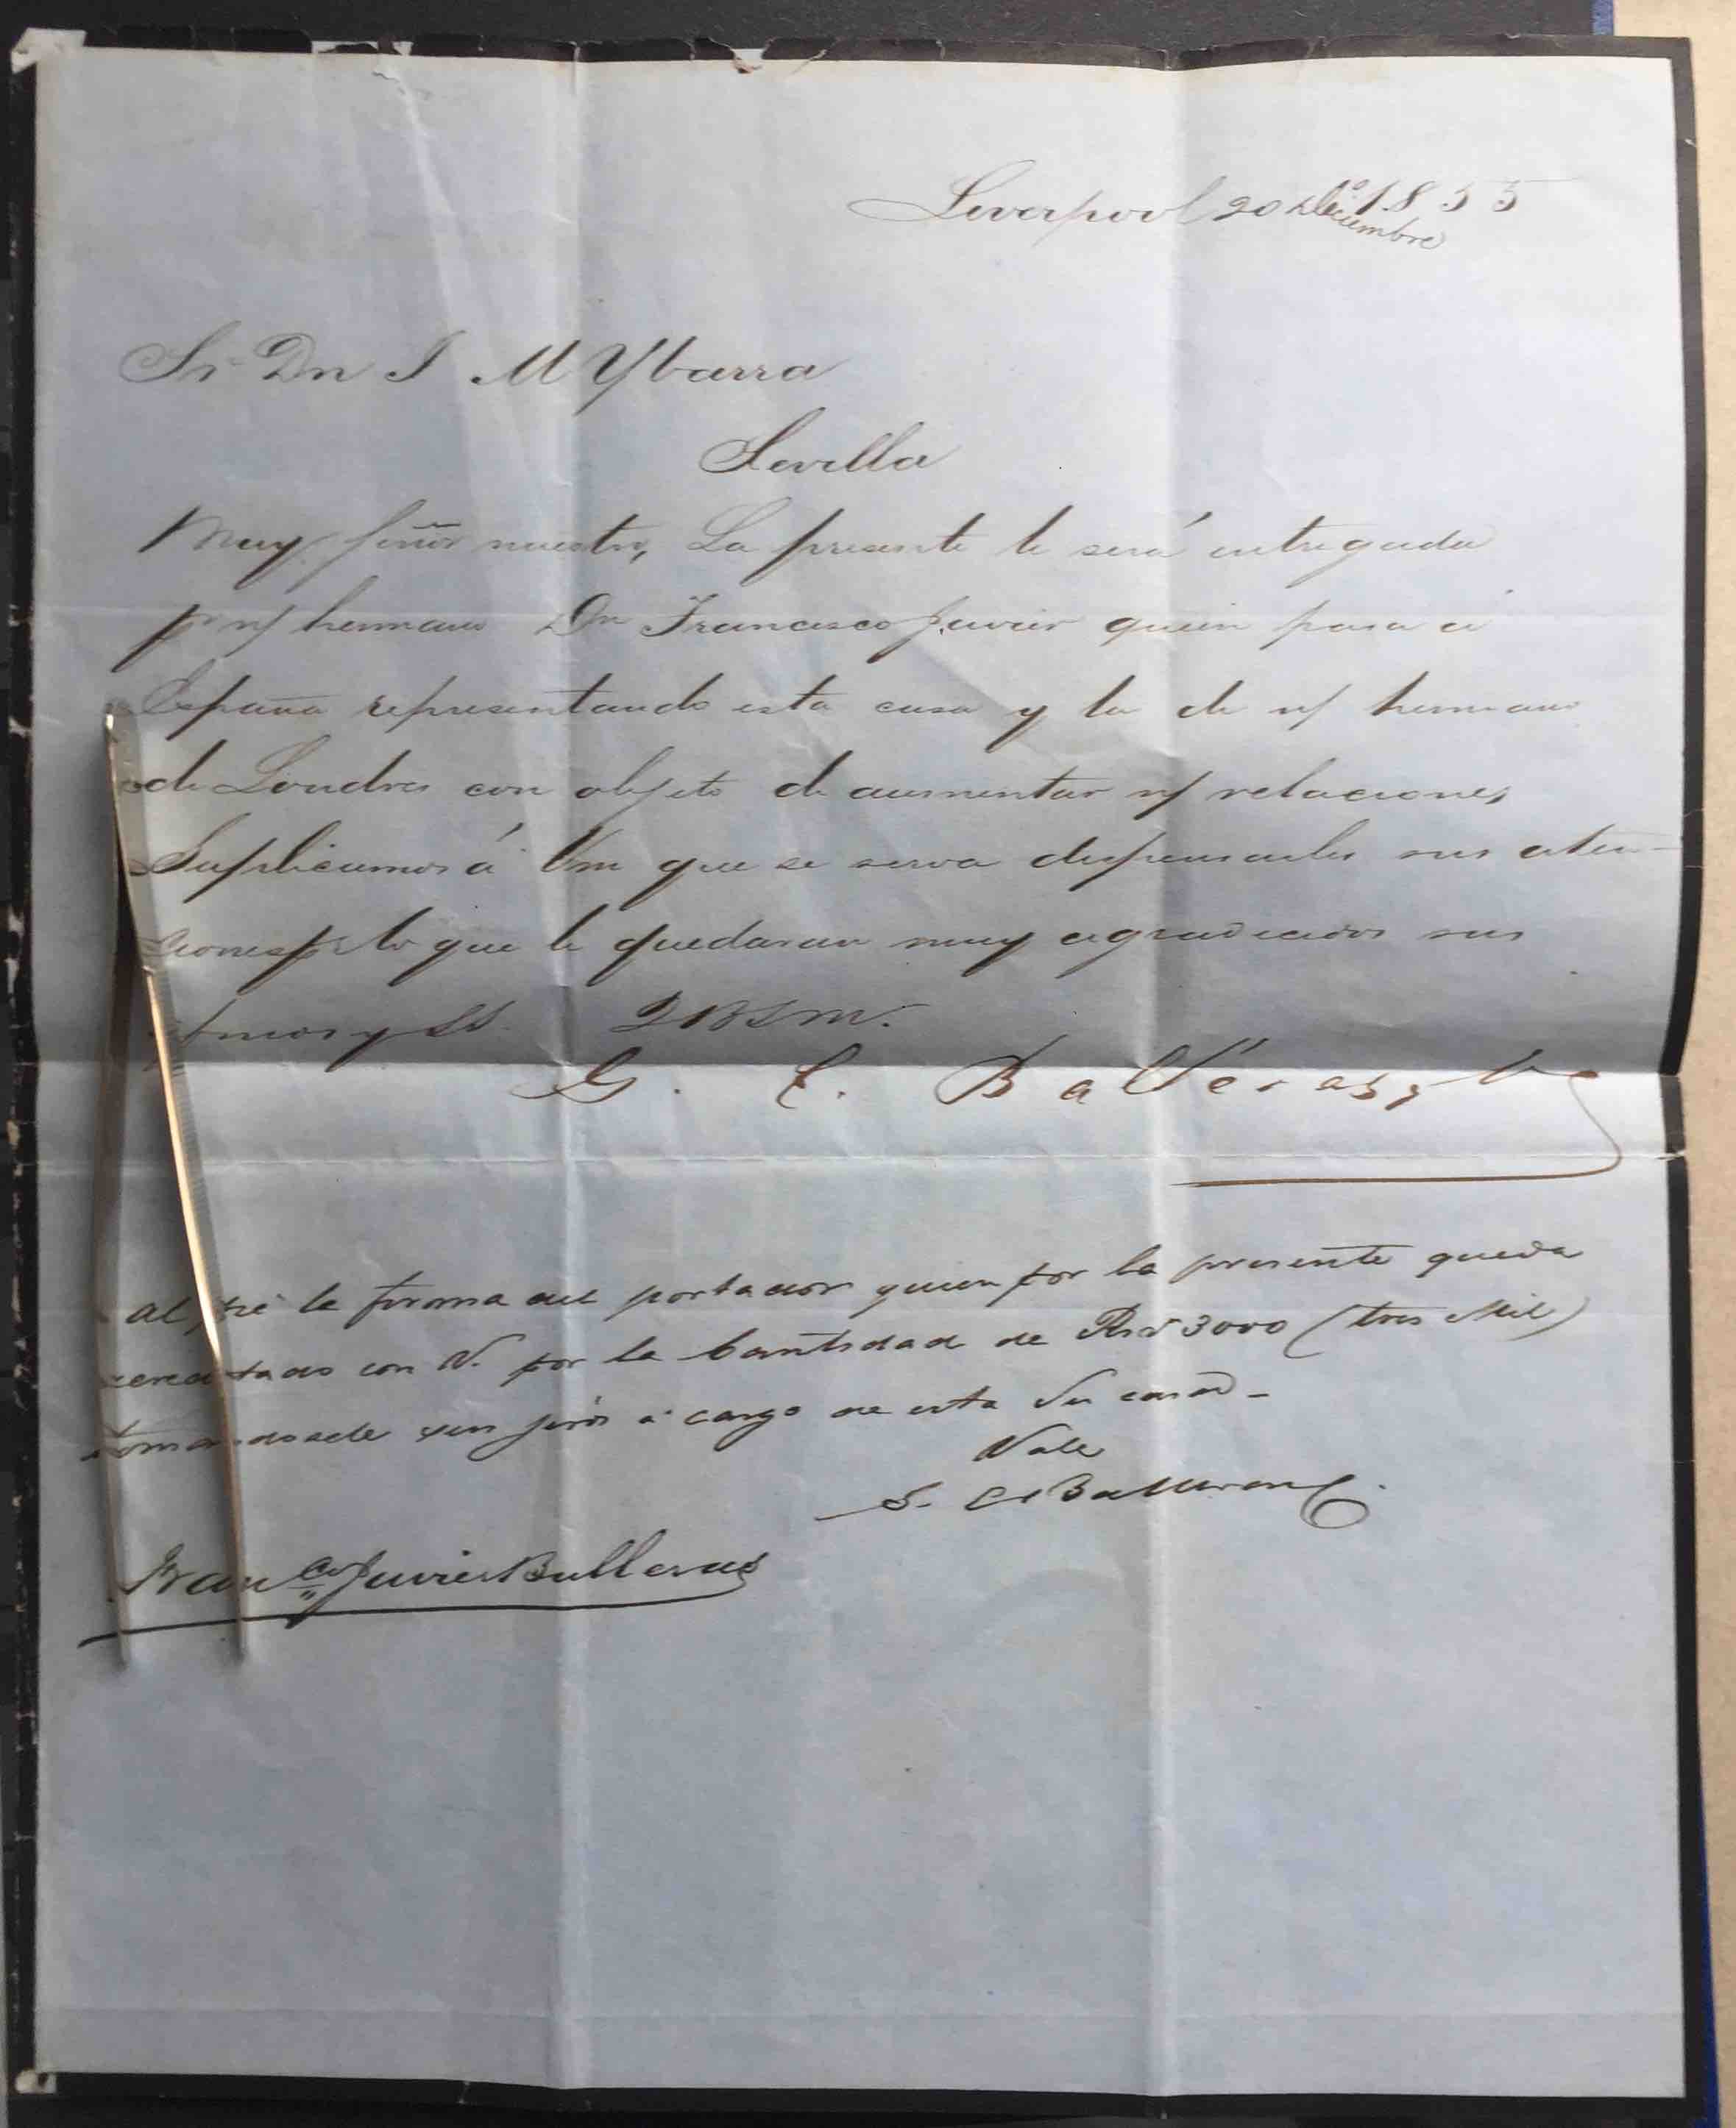 Liverpool 20 Diciembre 1855
Sr Dn J M Ybarra
Sevilla
Muy señor nuestro, La presente le será entregada
pr n/ hermano Dn Francisco Javier quien pasa á
España representando esta casa y la de n/ hermano
de Londres con objeto de aumentar n/ relaciones
Suplicamos á Vm que se serva dispensarles sus aten-
ciones pr lo que le quedaran muy agradecidos sus
Amos y SS. Q B S M.
G. C. Balleras y
Al pie la firma del portador quien por la presente queda
acreditado con V. por la Cantidad de Rs vn 3000 (tres Mil)
tomandosele sus giros á cargo de esta Su casa -
Vale
Franco Javier Balleras